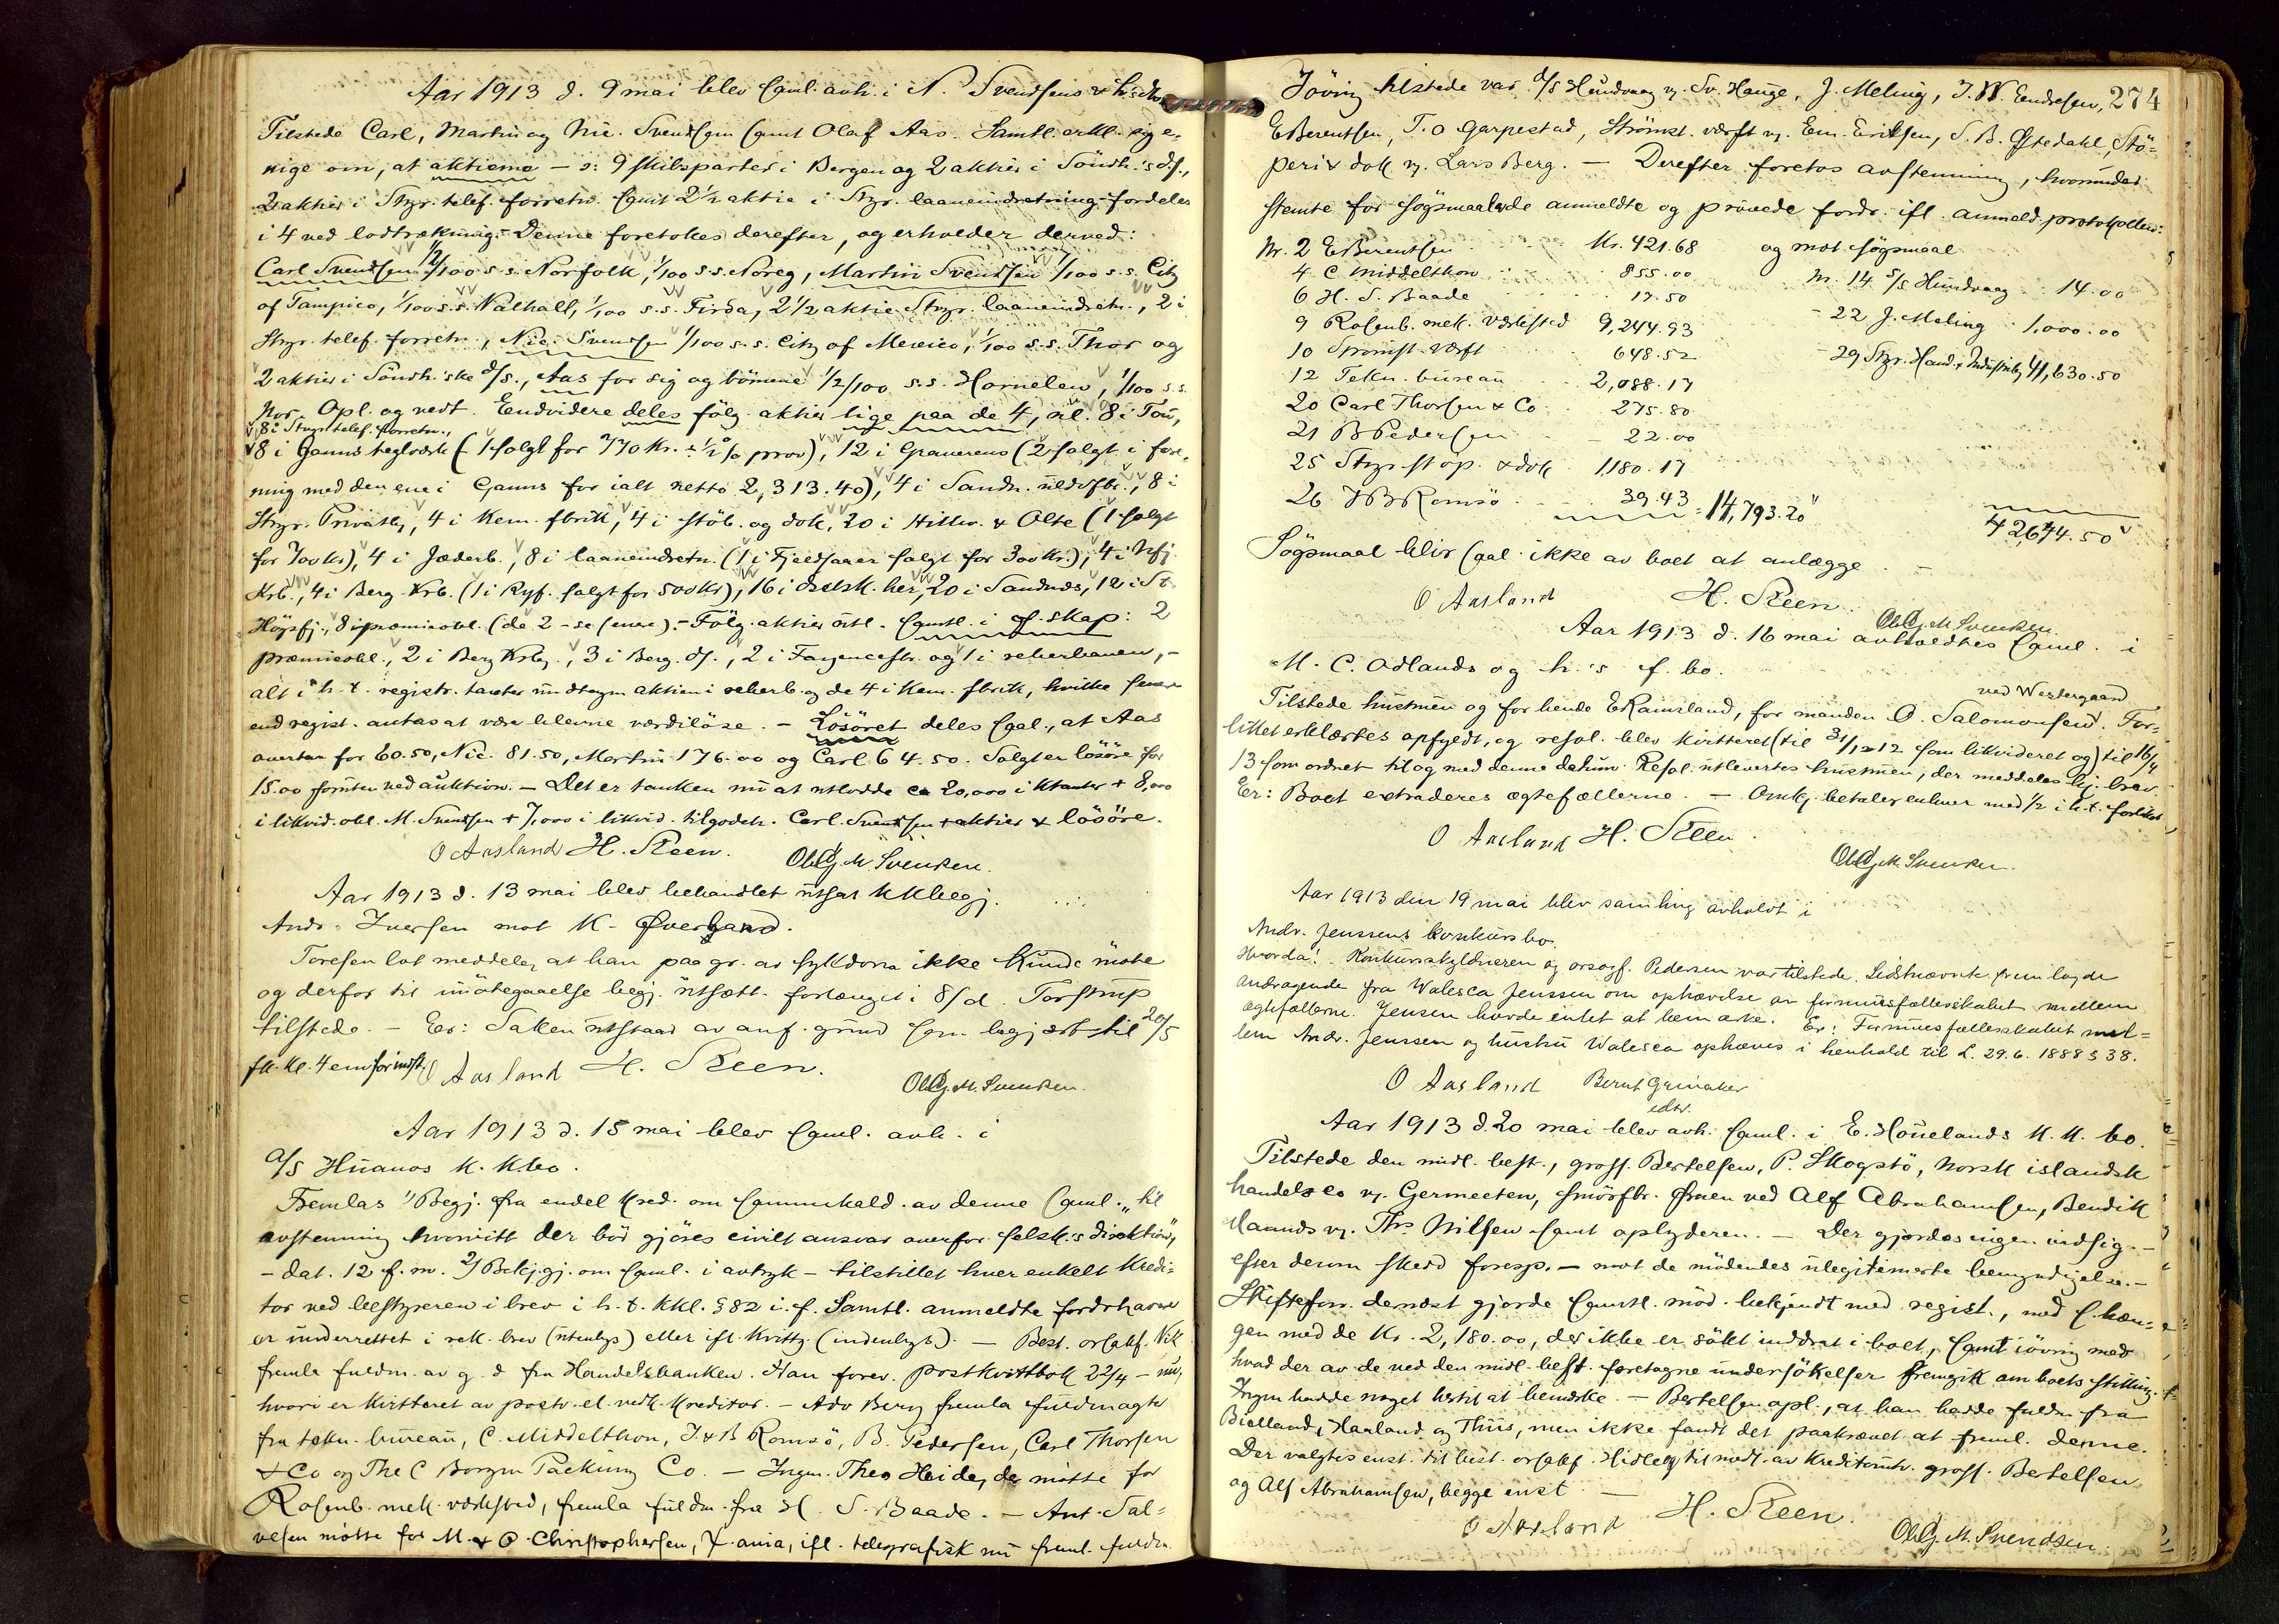 Aar 1913 d. 9 mai blev saml. avh. i N. Svendsens & h.s dbo
Tilstede Carl, Martin og Nic. Svendsen samt Olaf Aas. Samtl. erkl. sig e-
nige om, at aktierne – ɔ: 9 skibsparter i Bergen og 2 aktier i Söndh.'s d/s.,
2 aktier i Stgr. telef. forretn. samt 2 1/2 aktie i Stgr. laaneindretning fordeles
i 4 ved lodtrækning. – Denne foretokes derefter, og erholder derved:
Carl Svendsen 1/2/100 s.s. Norfolk, 1/100 s.s. Noreg, Martin Svendsen 1/100 s.s. City
of Tampico, 1/100 s.s. Valhall, 1/100 s.s. Firda, 2 1/2 aktie Stgr. laaneindretn., 2 i
Stgr. telef. forretn., Nic. Svendsen 1/100 s.s. City of Mexico, 1/100 s.s. Thor og
2 aktier i Söndh.'ske d/s., Aas for sig og börnene 1/2/100 s.s. Hornelen, 1/100 s.s.
Nor. Opl. og vedt. Endvidere deles fölg. aktier lige paa de 4, nl. 8 i Tou,
8 i Stgr. telef. forretn.,
8 i Ganns teglverk (1 solgt for 770 Kr. ÷ 1/2 % prov), 12 i Graverens (2 solgt i fore-
ning med den ene i Ganns for ialt netto 2,313.40), 4 i Sandn. uldsfbr., 8 i
Stgr. Privatbk, 4 i Kem. fbrik, 4 i stöb. og dok, 20 i Hillev. & Olte (1 solgt
for 700 kr), 4 i Jæderb., 8 i laaneindretn. (1 i Fjeldsaaer solgt for 300 kr.), 4 i Nfj.
Krb., 4 i Berg. Krb. (1 i Ryf. solgt for 500 Kr), 16 i dselsk. her, 20 i Sandnds, 12 i St.
Högsfj., 8 i præmieobl. (de 2 - se senere). – Fölg. aktier utl. samtl. i f. skap: 2
præmieobl., 2 i Berg Krby., 3 i Berg. d/s., 2 i Fayencefbr. og 1 i reberbanen, –
alt i h. t. registr. takster undtagen aktien i reberb. og de 4 i Kem. fbrik, hvilke senere
end regist. antas at være blevne værdilöse. – Lösöret deles saal., at Aas
overtar for 60.50, Nic. 81.50, Martin 176.00 og Carl 64.50. Solgt er lösöre for
15.00 foruten ved auktion. – Det er tanken nu at utlodde ca 20,000 i ktanter + 8,000
i likvid. obl. M. Svendsen + 7,000 i likvid. tilgodeh. Carl. Svendsen + aktier & lösöre.
O Aasland H. Steen. Ol. G. M. Svendsen.
Aar 1913 d. 13 mai blev behandlet utsat KKbegj.
Andr. Iversen mot K. Øverland.
Toresen lot meddele, at han paa gr. av sykdom ikke kunde möte
og derfor til imötegaaelse begj. utsætt. forlænget i 8/d. Torstrup
tilstede. – Er: Saken utstaar av anf. grund som begjært til 20/5
fk. Kl. 4 em for indst. O Aasland H. Steen. Ol. G. M. Svendsen.
Aar 1913 d. 15 mai blev saml. avh. i
A/S Huanos K. K. bo.
Fremlas 1/ Begj. fra endel kred. om sammenkald. av denne saml. "til
avstemning hvorvitt der bör gjöres civilt ansvar overfor selsk.'s direktion",
– dat. 12 f. m. 2/ Bekj. gj. om saml. i avtryk – tilstillet hver enkelt Kredi-
tor ved bestyreren i brev i h. t. KKl. § 82 i. f. Samtl. anmeldte fordrhavere
er underrettet i rek. brev (utenbys) eller ifl. kvittg. (indenbys). – Best. orsakf. Vik
fremla fuldm. av g. d fra Handelsbanken. Han forev. postkvittbok 22/4 – nu,
hvori er kvitteret av postv. el. vedk. kreditor. – Adv Berg fremla fuldmagter
fra tekn. bureau, C. Middelthon, I. & B Romsö, B. Pedersen, Carl Thorsen
& Co og The C Borgm Packing Co. – Ingm. Theo Heide, der mötte for
Rosenb. mek. værksted, fremla fuldm. fra H. S. Baade. – Ant. Sal-
vesen mötte for M. & O. Christophersen, X.ania, ifl. telegrafisk nu freml. fuldm.
274
Iövrig tilstede var A/S Hundvaag v. Sv. Hauge, J. Meling, I. W. Endresen,
E Berentsen, T. O Garpestad, Strömst. værft v. Em. Eriksen, S. B. Øftedahl, Stö-
peri & dok v. Lars Berg. – Derefter foretos avstemning, hvorunder
stemte for sögsmaal de anmeldte og prövede fordr. ifl. anmeld. protokollen:
Nr. 2 E Berentsen Kr. 421.68 og mot sögsmaal
4 C Middelthon 855.00 Nr. 14 A/S Hundvaag 14.00
6 H. S. Baade 17.50
9 Rosenb. mek. værksted 9,244.93 - 22 J. Meling 1,000.00
10 Strömst. værft 648.52 - 29 Stgr. Hand. & Industribk 41,630.50
12 Tekn. bureau 2,088.17
20 Carl Thorsen & Co. 275.80
21 B Pedersen 22.00
25 Stgr. stöp. & dok 1180.17
26 I B Romsö 39.43 = 14,793.20
42,644.50
Sögsmaal blir saal. ikke av boet at anlægge. –
O Aasland H. Steen. Ol. G. M. Svendsen.
Aar 1913 d. 16 mai avholdtes saml. i
M. C. Odlands og h.'s f. bo.
Tilstede hustruen og for hende E Ramsland, for manden O. Salomonsen ved Westergaard. For-
liket erklærtes opfyldt, og resol. blev kvitteret (til 31/12 12 som likvideret og) til 16/4
13 som ordnet til og med denne datum. Resol. utlevertes hustruen, der meddeles bj. brev.
Er: Boet extraderes ægtefællerne. – Omk. betaler enhver med 1/2 i h. t. forliket.
O Aasland H. Steen. Ol. G. M. Svendsen.
Aar 1913 den 19 mai blev samling avholdt i
Andr. Jenssens konkursbo.
Hvorda! Konkursskyldneren og orsagf. Pedersen var tilstede. Sidstnævnte fremlagde
andragende fra Walesca Jenssen om ophævelse av formuesfællesskabet mellem
ægtefællerne. Jensen havde intet at bemærke. Er: Formuesfællesskabet mel-
lem Andr. Jenssen og hustru Walesca ophæves i henhold til L. 29.6. 1888 § 38.
O Aasland Bernt Grimaker
edsv.
Aar 1913 d. 20 mai blev avh. saml. i E. Hauelands K. K. bo.
Tilstede den midl. best., gross. Bertelsen, P. Skogstö, Norsk islandsk
handels co v. Germeeten, smörfbr. Ørnen ved Alf Abrahamsen, Bendik
Maands v. Ths Nilsen samt oplyderen. – Der gjordes ingen indsig. –
efter derom skedd foresp. – mot de mödendes ulegitimerte bemyndigelse. –
Skifteforv. dernæst gjorde samtl. mød. bekjendt med regist., med s.hæn-
gen med de Kr. 2,180.00, der ikke er sökt inddrat i boet, samt iövrig med
hvad der av de ved den midl. best. foretagne undersökelser fremgik om boets stilling.
Ingen hadde noget hertil at bemærke. – Bertelsen opl., at han hadde fuldm fra
Bielland, Haaland og Thiis, men ikke fandt det paakrævet at freml. denne.
Der valgtes enst. til best. orsakf. Hidle og til medl. av kreditorutv. gross. Bertelsen
og Alf Abrahamsen, begge enst. –
O Aasland H. Steen. Ol. G. M. Svendsen.